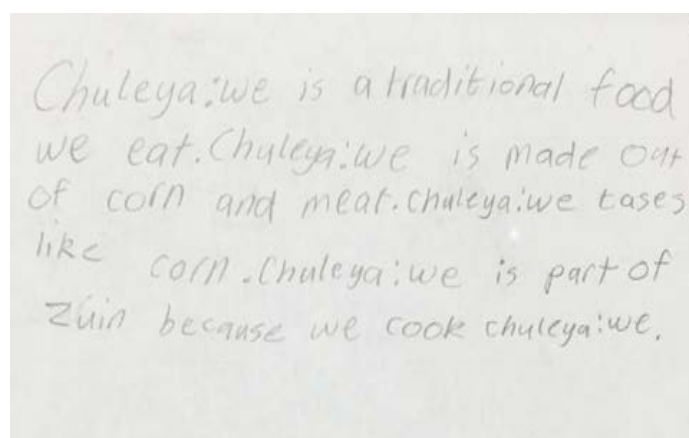 Chuleya:we is a traditional food
we eat. Chuleya:we is made out
of corn and meat. chuleya:we tases
like corn. Chuleya:we is part of
Zuin because we cook chuleya:we.